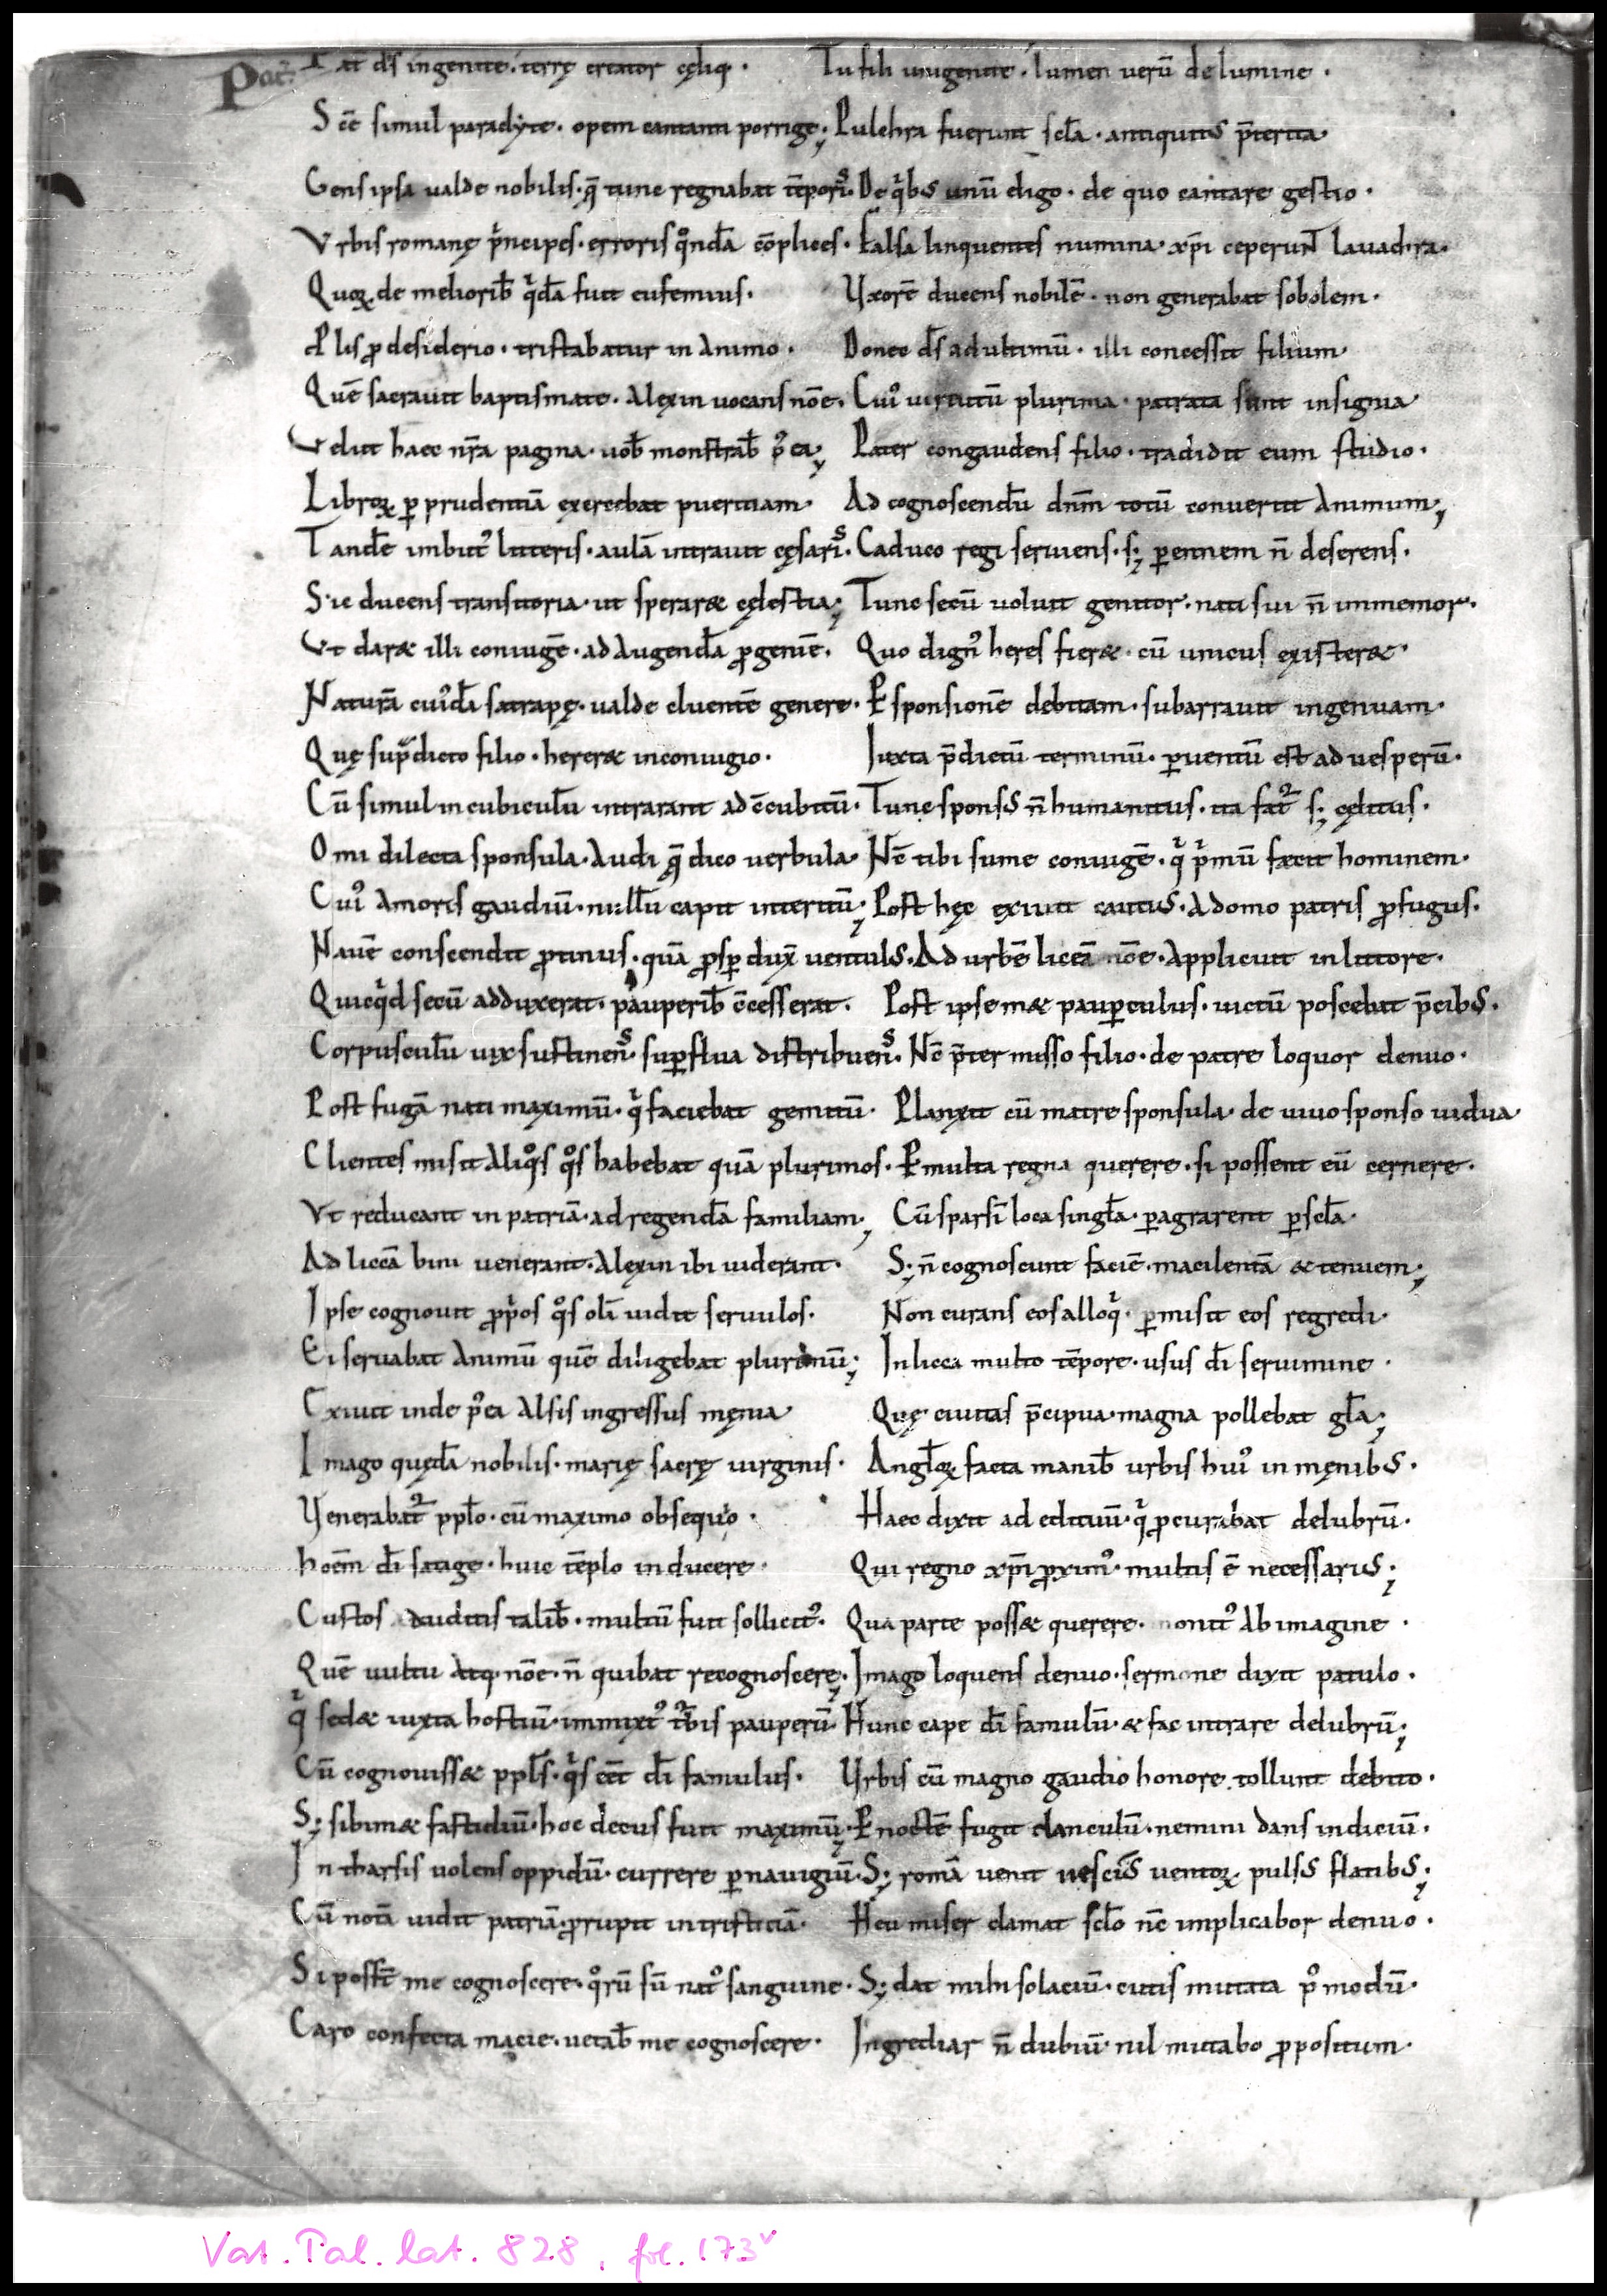 Pat̄. Pat ds̄ ingenite · terrę creator cęliq; · Tu fili unigenite · lumen uerū de lumine ·
Scē simul paradyte · opem cantanti porrige; Pulchra fuerunt scl̄a · antiquitus p̄terita
Gens ipsa ualde nobilis · quę̄ tunc regnabat tēporis · De qͥbus unū eligo · de quo cantare gestio ·
Vrbis romanę pͥncipes · erroris qͦndā cōplices · Falsa linquentes numina · xp̄i ceperunt lauacra ·
Quoꝝ de meliorib; qͥdā fuit eufemius · Vxorē ducens nobilē · non generabat sobolem ·
Plis ꝓ desiderio · tristabatur in animo · Donec ds̄ ad ultimū · illi concessit filium
Quē sacrauit baptismate · Alexin uocans nōe · Cuiꝰ uirtutū plurima · patrata sunt insignia
Velut haec nr̄a pagina · uob̄ monstrab̄ pꝰea; Pater congaudens filio · tradidit eum studio ·
Libroꝝ ꝑ prudentiā exercebat pueritiam · Ad cognoscendū dnm̄ totū conuertit animum;
Tandē imbutꝰ litteris · aulā intrauit cęsaris · Caduco regi seruiens · s; ꝑennem n̄ deserens ·
Sic ducens transitoria · ut speraræ cęlestia; Tunc secū uoluit genitor · nati sui n̄ immemor ·
Vt daræ illi coniugē · ad augendā ꝓgeniē · Quo dignꝰ heres fieræ · cū unicus existeræ ·
Naturā cuiꝰdā satrapę · ualde cluentē genere · P sponsionē debitam · subarrauit ingenuam ·
Quę sup̄dicto filio · hereræ in coniugio · Iuxta p̄dictū terminū · ꝑuentū est ad uesperū ·
Cū simul in cubiculū intrarant ad c̄cubitū · Tunc sponsus n̄ humanitus · ita fat̉ s; cęlitus ·
O mi dilecta sponsula · Audi quę̄ dico uerbula · Nc̄ tibi sume coniugē · qͥ pͥmū fæcit hominem ·
Cuiꝰ amoris gaudiū · nullū capit interitū; Post hęc exiuit cautus · A domo patris ꝓfugus ·
Nauē conscendit ꝓtinus · quā ꝓsꝑ dux̄ uentulus · Ad urbē liceā nōe · Applicuit in littore ·
Quicqͥd secū adduxerat · pauperib̄ c̄cesserat · Post ipsemæ pauꝑculus · uictū poscebat p̄cibus ·
Corpusculū uix sustinens · suꝑflua distribuens · Nc̄ p̄termisso filio · de patre loquor denuo ·
Post fugā nati maximū · qͥ faciebat gemitū · Planxit cū matre sponsula · de uiuo sponso uidua
Clientes misit aliqͦs qͦs habebat quā plurimos · P multa regna querere · si possent eū cernere ·
Vt reducant in patriā · ad regendā familiam; Cū sparsī loca singl̄a · ꝑagrarent ꝑ scl̄a ·
Ad liceā bini uenerant · Alexin ibi uiderant · S; n̄ cognoscunt faciē · macilentā & tenuem;
Ipse cognouit ꝓpͥos qͦs olī uidit seruulos · Non curans eos alloqͥ · ꝑmisit eos regredi ·
Ei seruabat animū quē diligebat plurimū; In licea multo tēpore · usus dī seruimine ·
Exiuit inde pꝰea Alsis ingressus męnia Quę ciuitas p̄cipua · magna pollebat gl̄a;
Imago quędā nobilis · marię sacrę uirginis · Angl̄oꝝ facta manib̄ urbis huiꝰ in męnibus ·
Venerabat̉ ppl̄o · cū maximo obsequio · Haec dixit ad edituū · qͥ ꝓcurabat delubrū ·
hoēm dī satage · huic tēplo inducere · Qui regno xp̄i ꝓximꝰ · multis ē necessarius;
Custos auditis talib̄ · multū fuit sollicitꝰ · Qua parte possæ querere · monitꝰ ab imagine ·
Quē uultu atq; nōe · n̄ quibat recognoscere; Imago loquens denuo · sermone dixit patulo ·
qͥ sedæ iuxta hostiū · immixtꝰ t̉bis pauperū · Hunc cape dī famulū · & fac intrare delubrū;
Cū cognouissæ ppl̄s · qͥs eēt dī famulus · Vrbis cū magno gaudio honore tollunt debito ·
S; sibimæ fastidiū · hoc decus fuit maximū; P noctē fugit clanculū · nemini dans indiciū ·
In tharsis uolens oppidū · currere ꝑ nauigiū · S; romā uenit nescius uentoꝝ pulsus flatibus;
Cū notā uidit patriā · ꝓrupit in tristiciā · Heu miser clamat scl̄o nc̄ implicabor denuo ·
Si possēt me cognoscere · qͦrū sū natꝰ sanguine · S; dat mihi solaciū · cutis mutata pꝰ modū ·
Caro confecta macie · uetab̄ me cognoscere · Ingrediar n̄ dubiū · nil mutabo ꝓpositum ·
Vat. Pal. lat. 828, fol. 173ᵛ